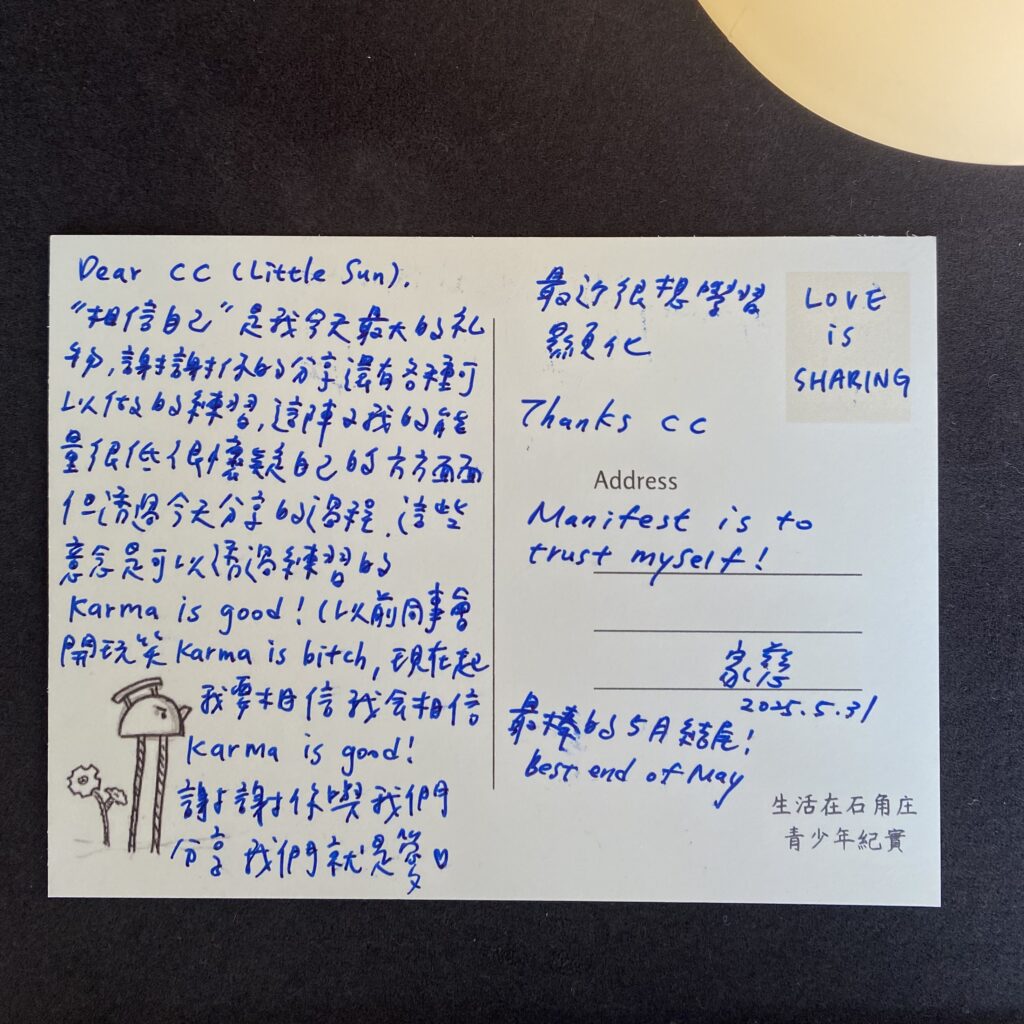 Dear CC (Little Sun).
"相信自己"是我今天最大的礼
物,謝謝你的分享還有各種可
以做的練習,這陣子我的能
量很低很懷疑自己的方方面面
但透過今天分享的過程,這些
意念是可以透過練習的
Karma is good! (以前同事會
開玩笑 Karma is bitch, 現在起
我要相信 我会相信
Karma is good!
謝謝你與我們
分享 我們就是愛♡
最近很想學習
顯化
Thanks CC
LOVE
is
SHARING
Address
Manifest is to
trust myself!
2025.5.31
最棒的5月結尾!
Best end of May
生活在石角庄
青少年紀實